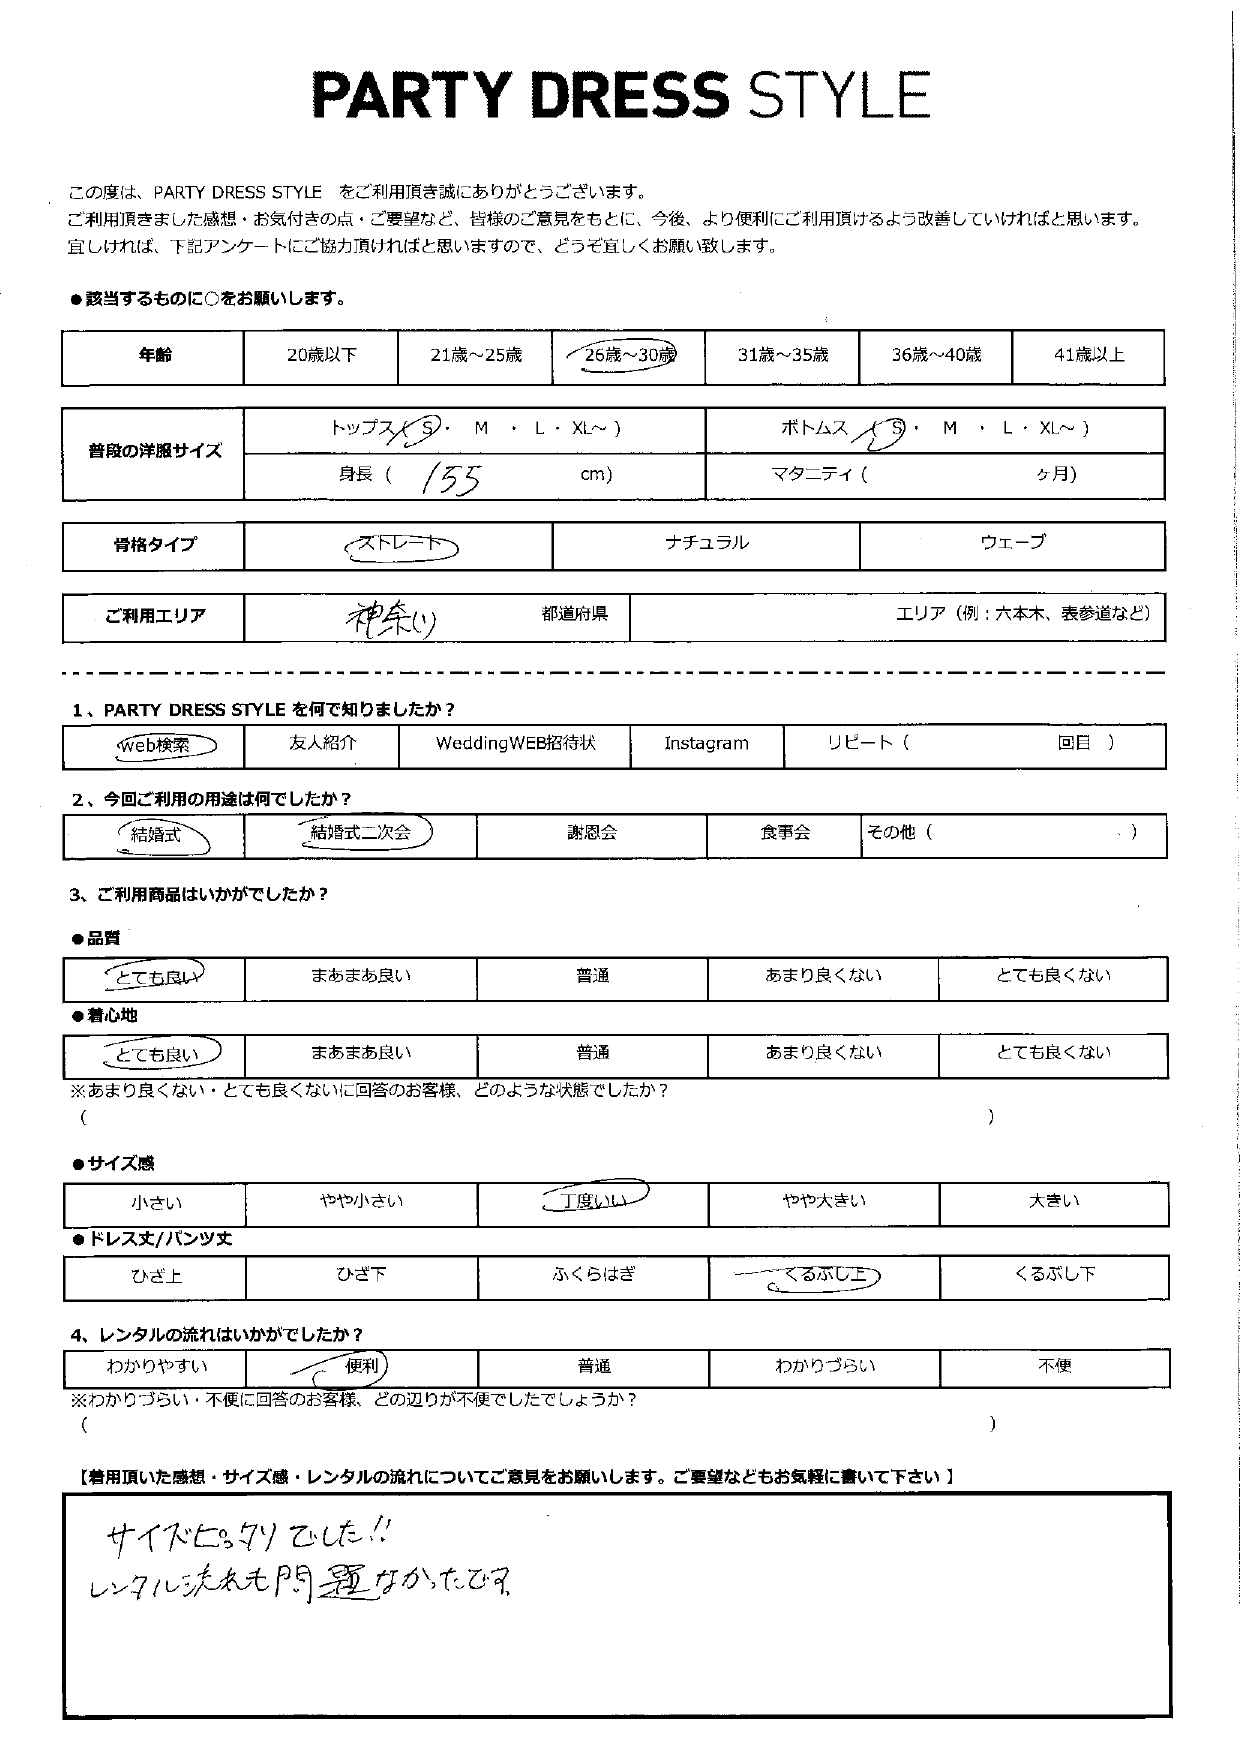 PARTY DRESS STYLE
この度は、PARTY DRESS STYLE をご利用頂き誠にありがとうございます。
ご利用頂きました感想・お気付きの点・ご要望など、皆様のご意見をもとに、今後、より便利にご利用頂けるよう改善していければと思います。
宜しければ、下記アンケートにご協力頂ければと思いますので、どうぞ宜しくお願い致します。
●該当するものに○をお願いします。
年齢 20歳以下 21歳～25歳 26歳～30歳 31歳～35歳 36歳～40歳 41歳以上
普段の洋服サイズ
トップス ( S ・ M ・ L ・ XL～ ) ボトムス ( S ・ M ・ L ・ XL～ )
身長 ( 155 cm) マタニティ ( ヶ月)
骨格タイプ ストレート ナチュラル ウェーブ
ご利用エリア 神奈川 都道府県 エリア（例：六本木、表参道など）
1、PARTY DRESS STYLE を何で知りましたか？
web検索 友人紹介 WeddingWEB招待状 Instagram リピート（ 回目 ）
2、今回ご利用の用途は何でしたか？
結婚式 結婚式二次会 謝恩会 食事会 その他（ ）
3、ご利用商品はいかがでしたか？
●品質
とても良い まあまあ良い 普通 あまり良くない とても良くない
●着心地
とても良い まあまあ良い 普通 あまり良くない とても良くない
※あまり良くない・とても良くないに回答のお客様、どのような状態でしたか？
（ ）
●サイズ感
小さい やや小さい 丁度いい やや大きい 大きい
●ドレス丈/パンツ丈
ひざ上 ひざ下 ふくらはぎ くるぶし上 くるぶし下
4、レンタルの流れはいかがでしたか？
わかりやすい 便利 普通 わかりづらい 不便
※わかりづらい・不便に回答のお客様、どの辺りが不便でしたでしょうか？
（ ）
【着用頂いた感想・サイズ感・レンタルの流れについてご意見をお願いします。ご要望などもお気軽に書いて下さい 】
サイズピッタリでした!!
レンタル流れも問題なかったです